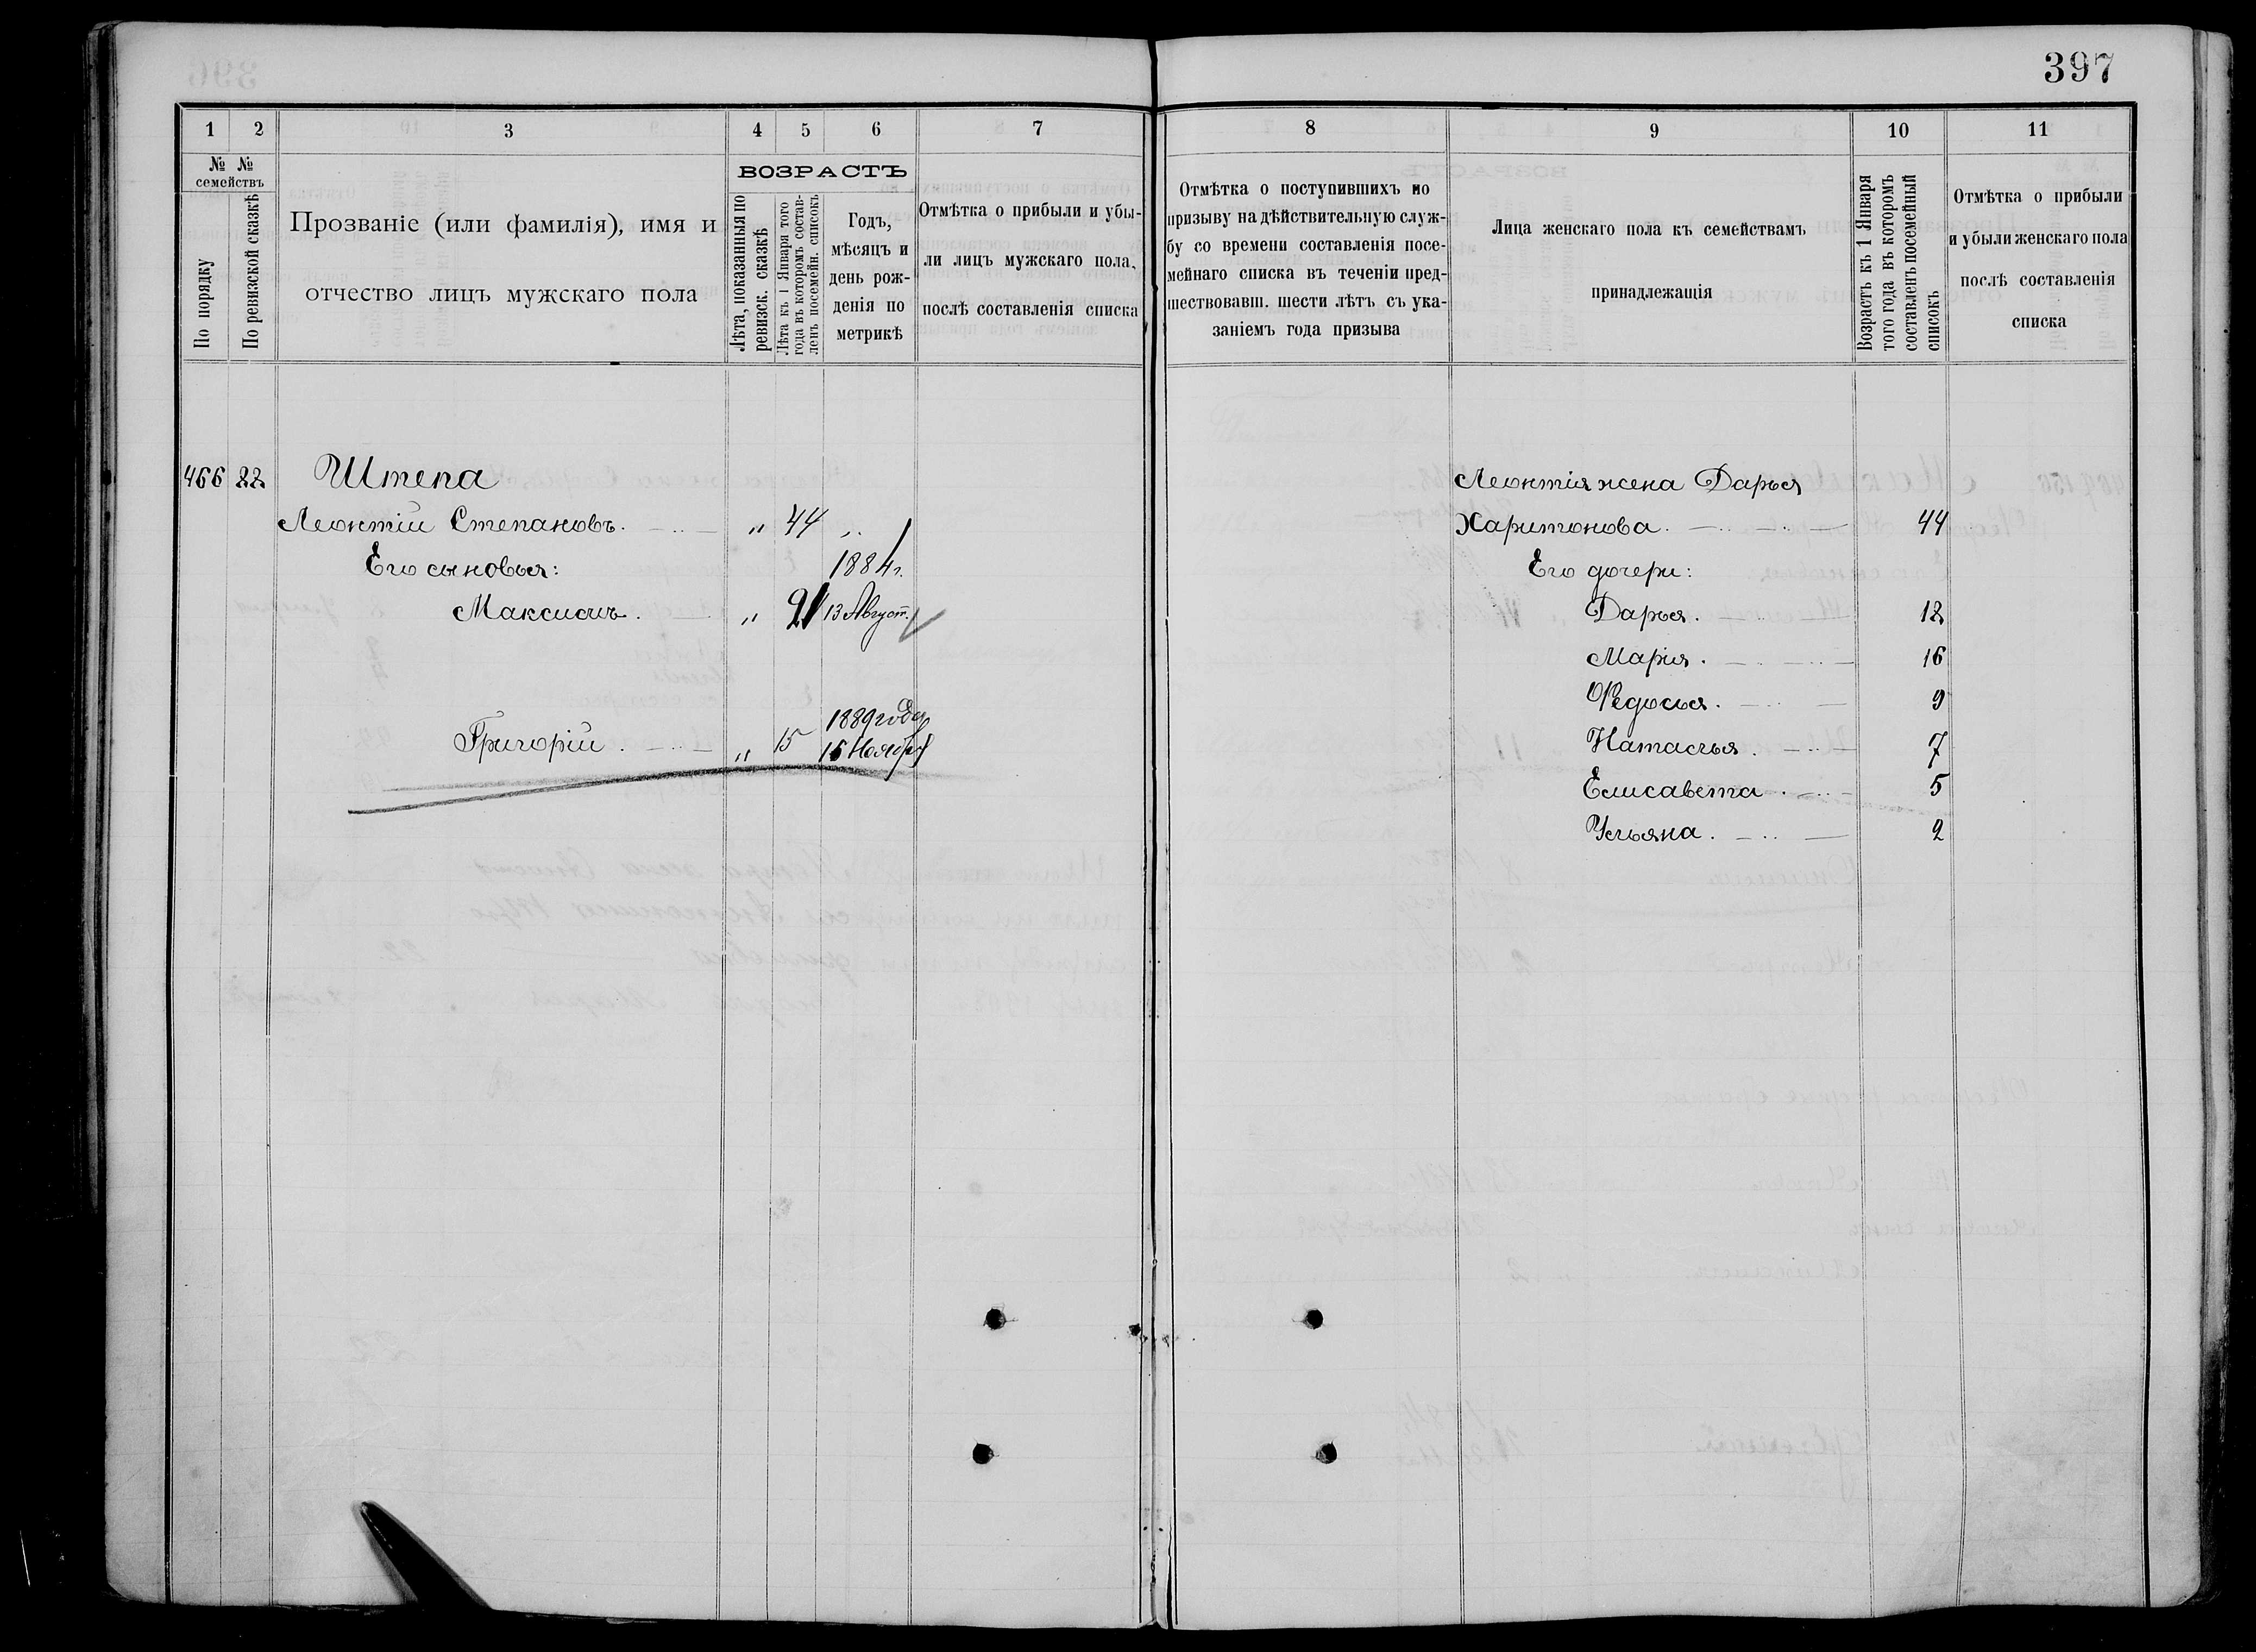 397
1 2 3 4 5 6 7
№ № семействъ
По порядку
По ревизской сказкѣ
Прозваніе (или фамилія), имя и
отчество лицъ мужскаго пола
ВОЗРАСТЪ
Лѣта, показанныя по
ревизск. сказкѣ
Лѣта къ 1 Января того
года въ которомъ состав-
ленъ посемейн. списокъ
Годъ,
мѣсяцъ и
день рож-
денія по
метрикѣ
Отмѣтка о прибыли и убы-
ли лицъ мужскаго пола,
послѣ составленія списка
466 22 Штепа
Леонтій Степановъ. „ 44 „
Его сыновья: 1884 г.
Максимъ. „ 21 13 Август.
1889 года
Григорій. „ 15 15 Ноября
8 9 10 11
Отмѣтка о поступившихъ по
призыву на дѣйствительную служ-
бу со времени составленія посе-
мейнаго списка въ теченіи пред-
шествовавш. шести лѣтъ съ ука-
заніемъ года призыва
Лица женскаго пола къ семействамъ
принадлежащія
Возрастъ къ 1 Января
того года въ которомъ
составленъ посемейный
списокъ
Отмѣтка о прибыли
и убыли женскаго пола
послѣ составленія
списка
Леонтія жена Дарья
Харитонова. 44
Его дочери:
Дарья. 12
Марія. 16
Федосья. 9
Наталья. 7
Елисавета. 5
Ульяна. 2